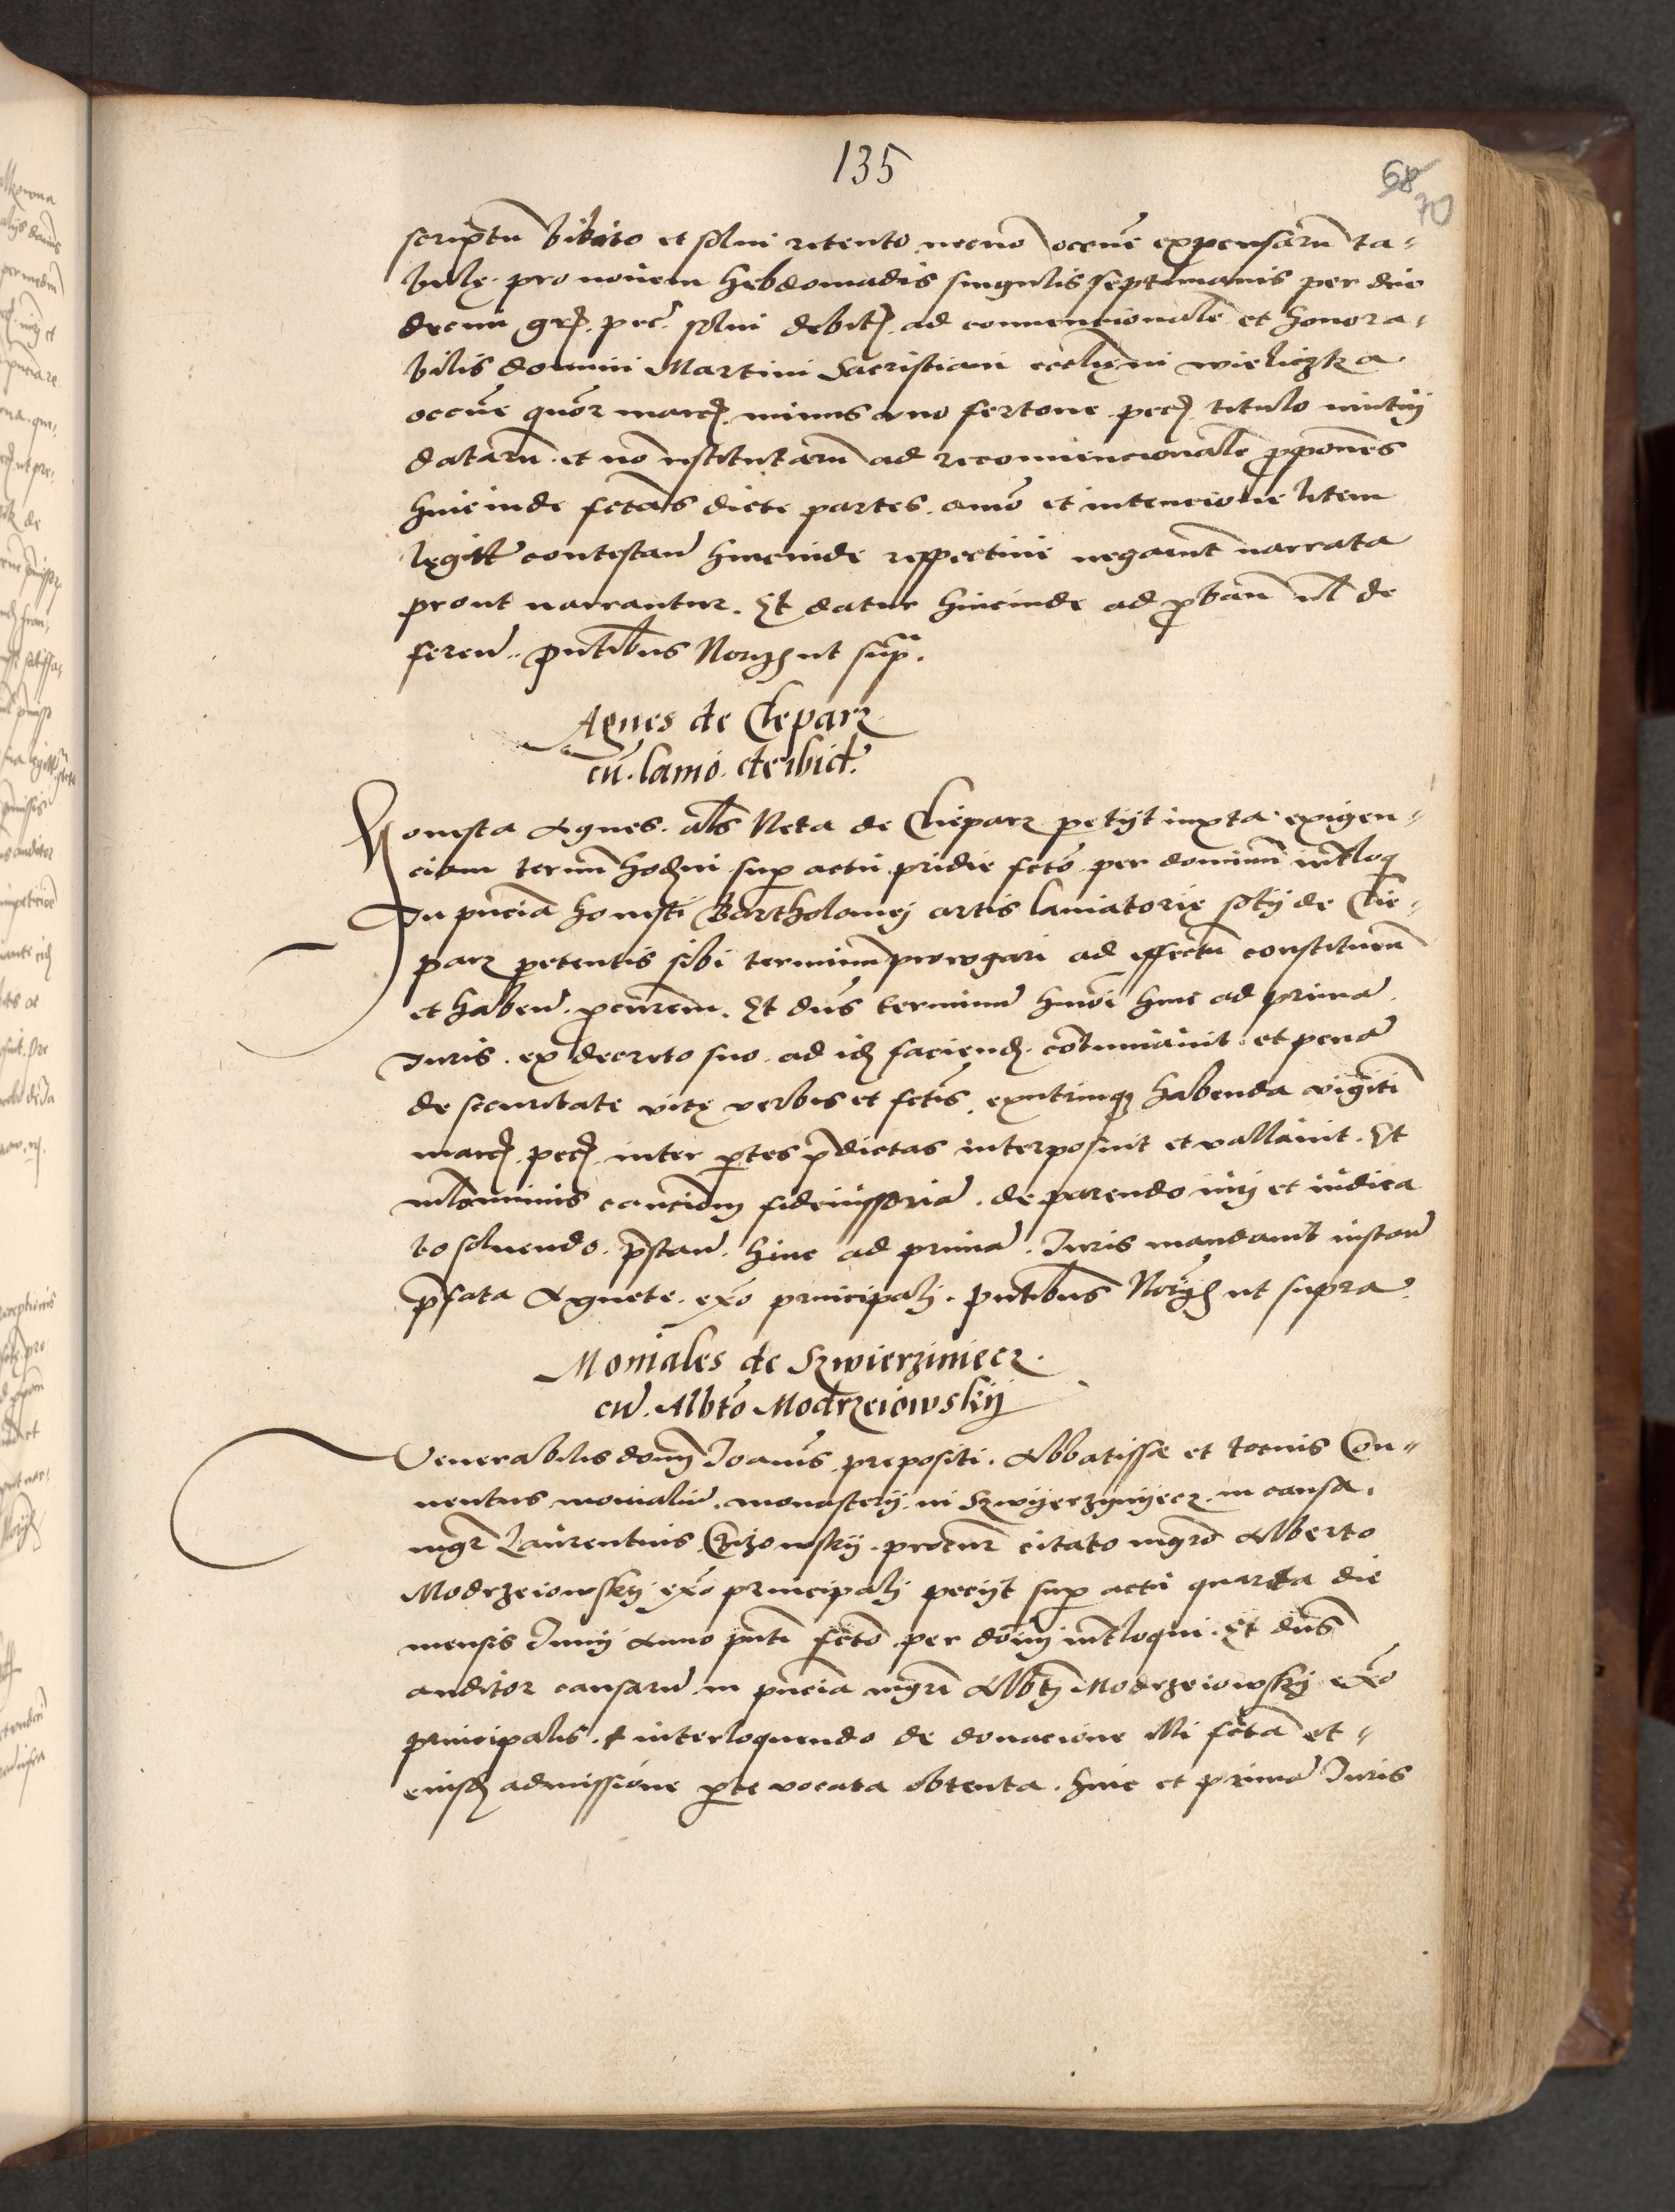 135
68
70
scriptum bibito et solui retento necno occne expensaru ta-
bule pro nouem hebdomadis singulis septimanis per due
decim grs. pec. solui debit. ad conuencionale et honora-
bilis domini Martini Sacristiani in wieliczka
occne quor marcs. minus vno fertone pecs titulo mutuj
dataru et no restitutaru ad reconuencionale ppones
hincinde fctas dicte partes. et intencione litem
legitte contestan hincinde respective negarnt narrata
prout narrantur. Et datur hincinde ad pban vl de
feren. pntibus Norys ut supa.
Agnes de Cleparz
cu. lanio de ibid.
Honesta Agnes. als Neta de Clieparz petijt iuxta exigen-
ciam termi hodierni sup actu pridie fcto per dominu intloq
In pncia honesti Bartholomej artis laniatorie sotij de Clie-
parz petentis sibi terminum prorogari ad effectu constituen
et haben. pcurem. Et dns terminu hmoi hinc ad prima
Iuris. ex decreto suo ad ids faciends. continuauit et pena
de securitate vite verbis et fctis exutrinqs habenda viginti
marcs. pecs. inter ptes pdictas interposuit et vallauit. Et
nlominus cauciom fideiussoria. de parendo iurj et iudica
to soluendo. pstan. hinc ad prima. Iuris mandauit instan
pfata Agnete. exo principalj. pntibus Norys ut supra
Moniales de Szwierziniecz.
cu. Albto Modrzeiowskij
Venerabilis domj Joannis prepositi. Abbatisse et tocius Con-
uentus monialiu. monasterij in Szwijerzynyecz. in causa.
mgr Laurentius procur citato mgro Alberto
Modrzeiowskj exo principalj pecijt sup actu quarta die
mensis Junij Anno pnti fcto per domj intloqui. Et dns
auditor causaru in pncia mgri Albtj Modrzeiowskj exo
principalis. interloquendo de donacione illi fcta et-
eiusds admissione pte vocata obtenta. hinc et prima Iuris